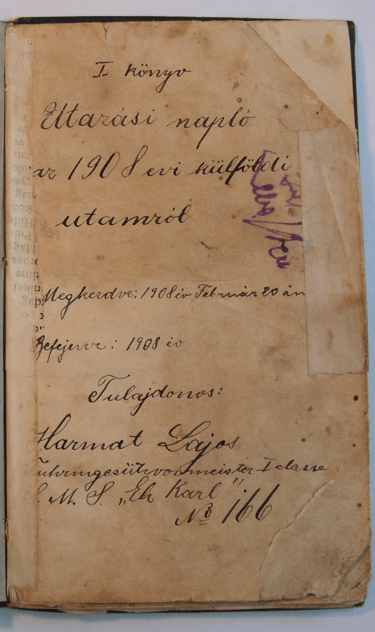 I könyv
Uttazási napló
az 1908 evi külföldi
utamról
Megkezdve: 1908 év Február 20 án
Befejezve: 1908 év
Tulajdonos:
Harmat Lajos
I classe
S. M. S. „Eh Karl”
№ 166